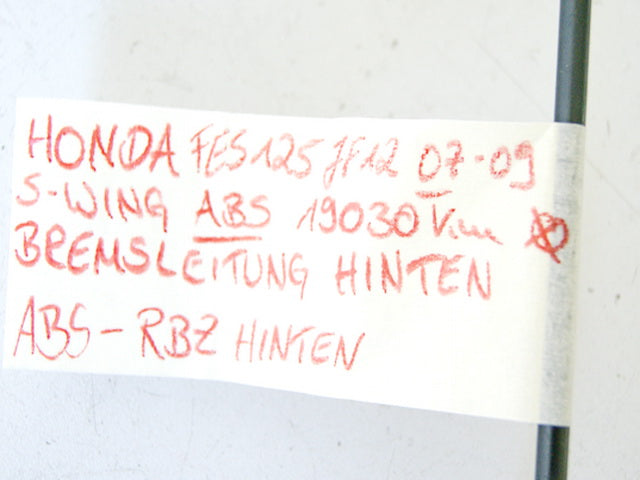 HONDA FES125 JF12 07-09
S-WING ABS 19030 Km
BREMSLEITUNG HINTEN
ABS-RBZ HINTEN